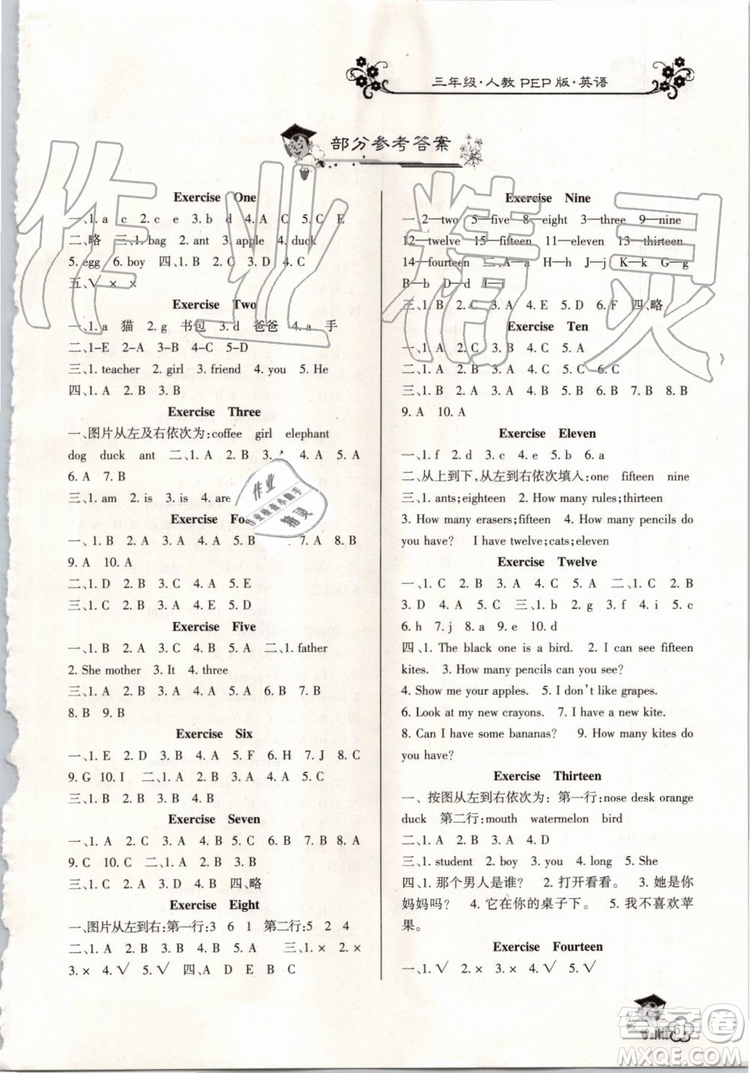 三年级·人教PEP版·英语
部分参考答案
Exercise One
一、1. a c 2. c e 3. b d 4. A C 5. C E
二、略 三、1. bag 2. ant 3. apple 4. duck
5. egg 6. boy 四、1. C 2. B 3. A 4. A
五、√ × ×
Exercise Two
一、1. a 猫 2. g 书包 3. d 爸爸 4. a 手
二、1-E 2-A 3-B 4-C 5-D
三、1. teacher 2. girl 3. friend 4. you 5. He
四、1. A 2. B 3. B
Exercise Three
一、图片从左及右依次为:coffee girl elephant
dog duck ant 二、1. A 2. B 3. A 4. A 5. A
6. A 7. B
三、1. am 2. is 3. is 4. are
Exercise
一、1. B 5. B 6. A 7. B 8. B
9. A 10. A
二、1. D 2. B 3. C 4. A 5. E
三、1. B 2. B 3. A 4. A 5. D
Exercise Five
一、1. B 2. A 3. A 4. B 二、1. father
2. She mother 3. It 4. three
三、1. B 2. A 3. A 4. A 5. B 6. A 7. B
8. B 9. B
Exercise Six
一、1. E 2. B 3. D 4. A 5. C 6. J 7. F 8. H
9. G 10. I 二、1. A 2. A 3. B 4. A
三、1. B 2. A 3. B 4. B 5. A
Exercise Seven
一、1. B 2. A 3. B 4. A 5. A 6. B 7. A 8. A
9. C 10. C 二、1. D 2. C 3. A 4. B
三、1. A 2. C 3. D 4. B 四、略
Exercise Eight
一、图片从左到右:第一行:3 6 1 第二行:5 2 4
二、1. C 2. A 3. B 4. A 5. B 三、1. × 2. ×
3. × 4. √ 5. √ 四、A D E B C
Exercise Nine
一 2—two 5—five 8—eight 3—three 9—nine
12—twelve 15—fifteen 11—eleven 13—thirteen
14—fourteen 二、
三、1. B 2. C 3. A 4. E 5. D 四、略
Exercise Ten
一、1. A 2. B 3. C 4. A
二、1. C 2. A 3. B 4. A 5. C 6. C
三、1. B 2. A 3. B 4. A 5. B 6. B 7. A 8. B
9. A 10. A
Exercise Eleven
一、1. f 2. c 3. a 4. e 5. b 6. d
二、从上到下,从左到右依次填入:one fifteen nine
三、1. ants;eighteen 2. How many rules;thirteen
3. How many erasers;fifteen 4. How many pencils do
you have? I have twelve;cats;eleven
Exercise Twelve
一、1. C 2. B 3. A 4. C 5. B 二、1. B 2. C
3. D 4. A 5. E 三、1. a 2. c 3. i 4. b 5. f
6. h 7. j 8. g 9. e 10. d
四、1. The black one is a bird. 2. I can see fifteen
kites. 3. How many pencils can you see?
4. Show me your apples. 5. I don't like grapes.
6. Look at my new crayons. 7. I have a new kite.
8. Can I have some bananas? 9. How many kites do
you have?
Exercise Thirteen
一、按图从左到右依次为: 第一行:nose desk orange
duck 第二行:mouth watermelon bird
二、1. C 2. A 3. A 4. D
三、1. student 2. boy 3. you 4. long 5. She
四、1. 那个男人是谁? 2. 打开看看。 3. 她是你
妈妈吗? 4. 它在你的桌子下。 5. 我不喜欢苹
果。
Exercise Fourteen
一、1. √ 2. × 3. √ 4. √ 5. √
作业精灵
作业
精灵
答案卷
MXQE.COM